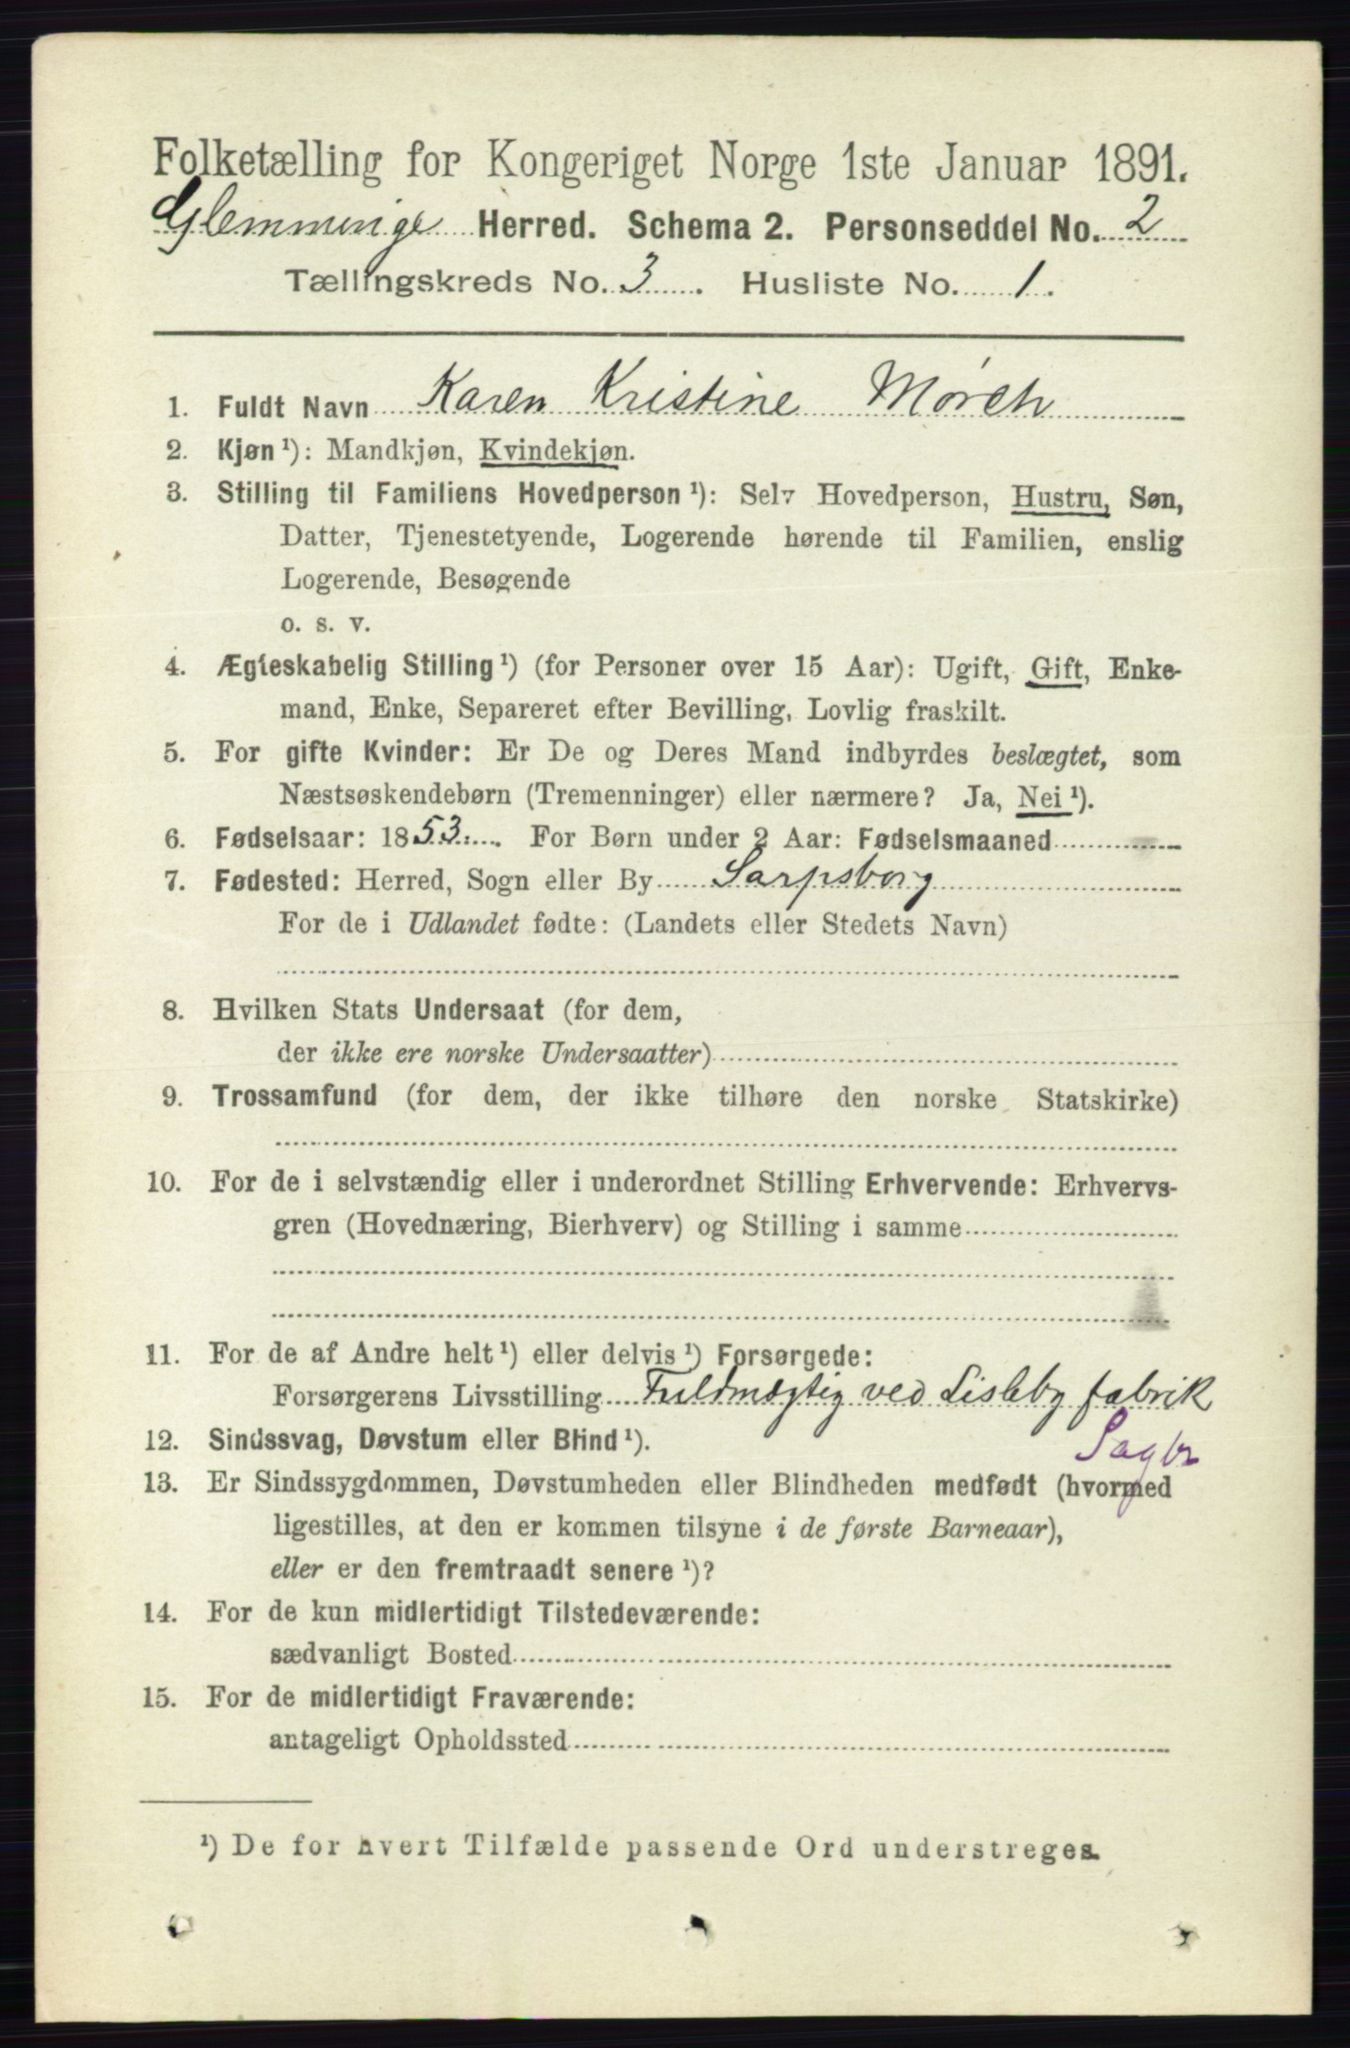 Folketælling for Kongeriget Norge 1ste Januar 1891.
Glemminge Herred. Schema 2. Personseddel No. 2
Tællingskreds No. 3. Husliste No. 1.
1. Fuldt Navn Karen Kristine Mørch
2. Kjøn ¹): Mandkjøn, Kvindekjøn.
3. Stilling til Familiens Hovedperson ¹): Selv Hovedperson, Hustru, Søn,
Datter, Tjenestetyende, Logerende hørende til Familien, enslig
Logerende, Besøgende
o. s. v.
4. Ægteskabelig Stilling ¹) (for Personer over 15 Aar): Ugift, Gift, Enke-
mand, Enke, Separeret efter Bevilling, Lovlig fraskilt.
5. For gifte Kvinder: Er De og Deres Mand indbyrdes beslægtet, som
Næstsøskendebørn (Tremenninger) eller nærmere? Ja, Nei ¹).
6. Fødselsaar: 1853. For Børn under 2 Aar: Fødselsmaaned
7. Fødested: Herred, Sogn eller By Sarpsborg
For de i Udlandet fødte: (Landets eller Stedets Navn)
8. Hvilken Stats Undersaat (for dem,
der ikke ere norske Undersaatter)
9. Trossamfund (for dem, der ikke tilhøre den norske Statskirke)
10. For de i selvstændig eller i underordnet Stilling Erhvervende: Erhvervs-
gren (Hovednæring, Bierhverv) og Stilling i samme
11. For de af Andre helt ¹) eller delvis ¹) Forsørgede:
Forsørgerens Livsstilling Fuldmægtig ved Lisleby fabrik
12. Sindssvag, Døvstum eller Blind ¹).
Sagbr
13. Er Sindssygdommen, Døvstumheden eller Blindheden medfødt (hvormed
ligestilles, at den er kommen tilsyne i de første Barneaar),
eller er den fremtraadt senere ¹)?
14. For de kun midlertidigt Tilstedeværende:
sædvanligt Bosted
15. For de midlertidigt Fraværende:
antageligt Opholdssted
¹) De for hvert Tilfælde passende Ord understreges.